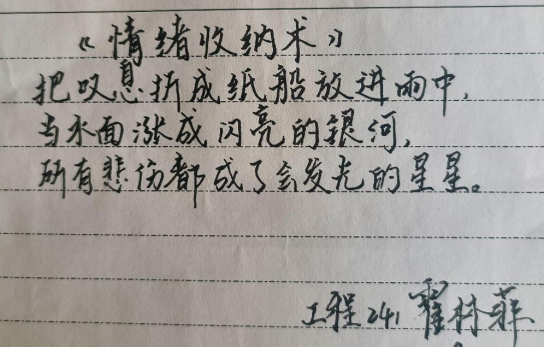 《情绪收纳术》
把叹息折成纸船放进雨中,
当水面涨成闪亮的银河,
所有悲伤都成了会发光的星星。
工程241 翟林菲